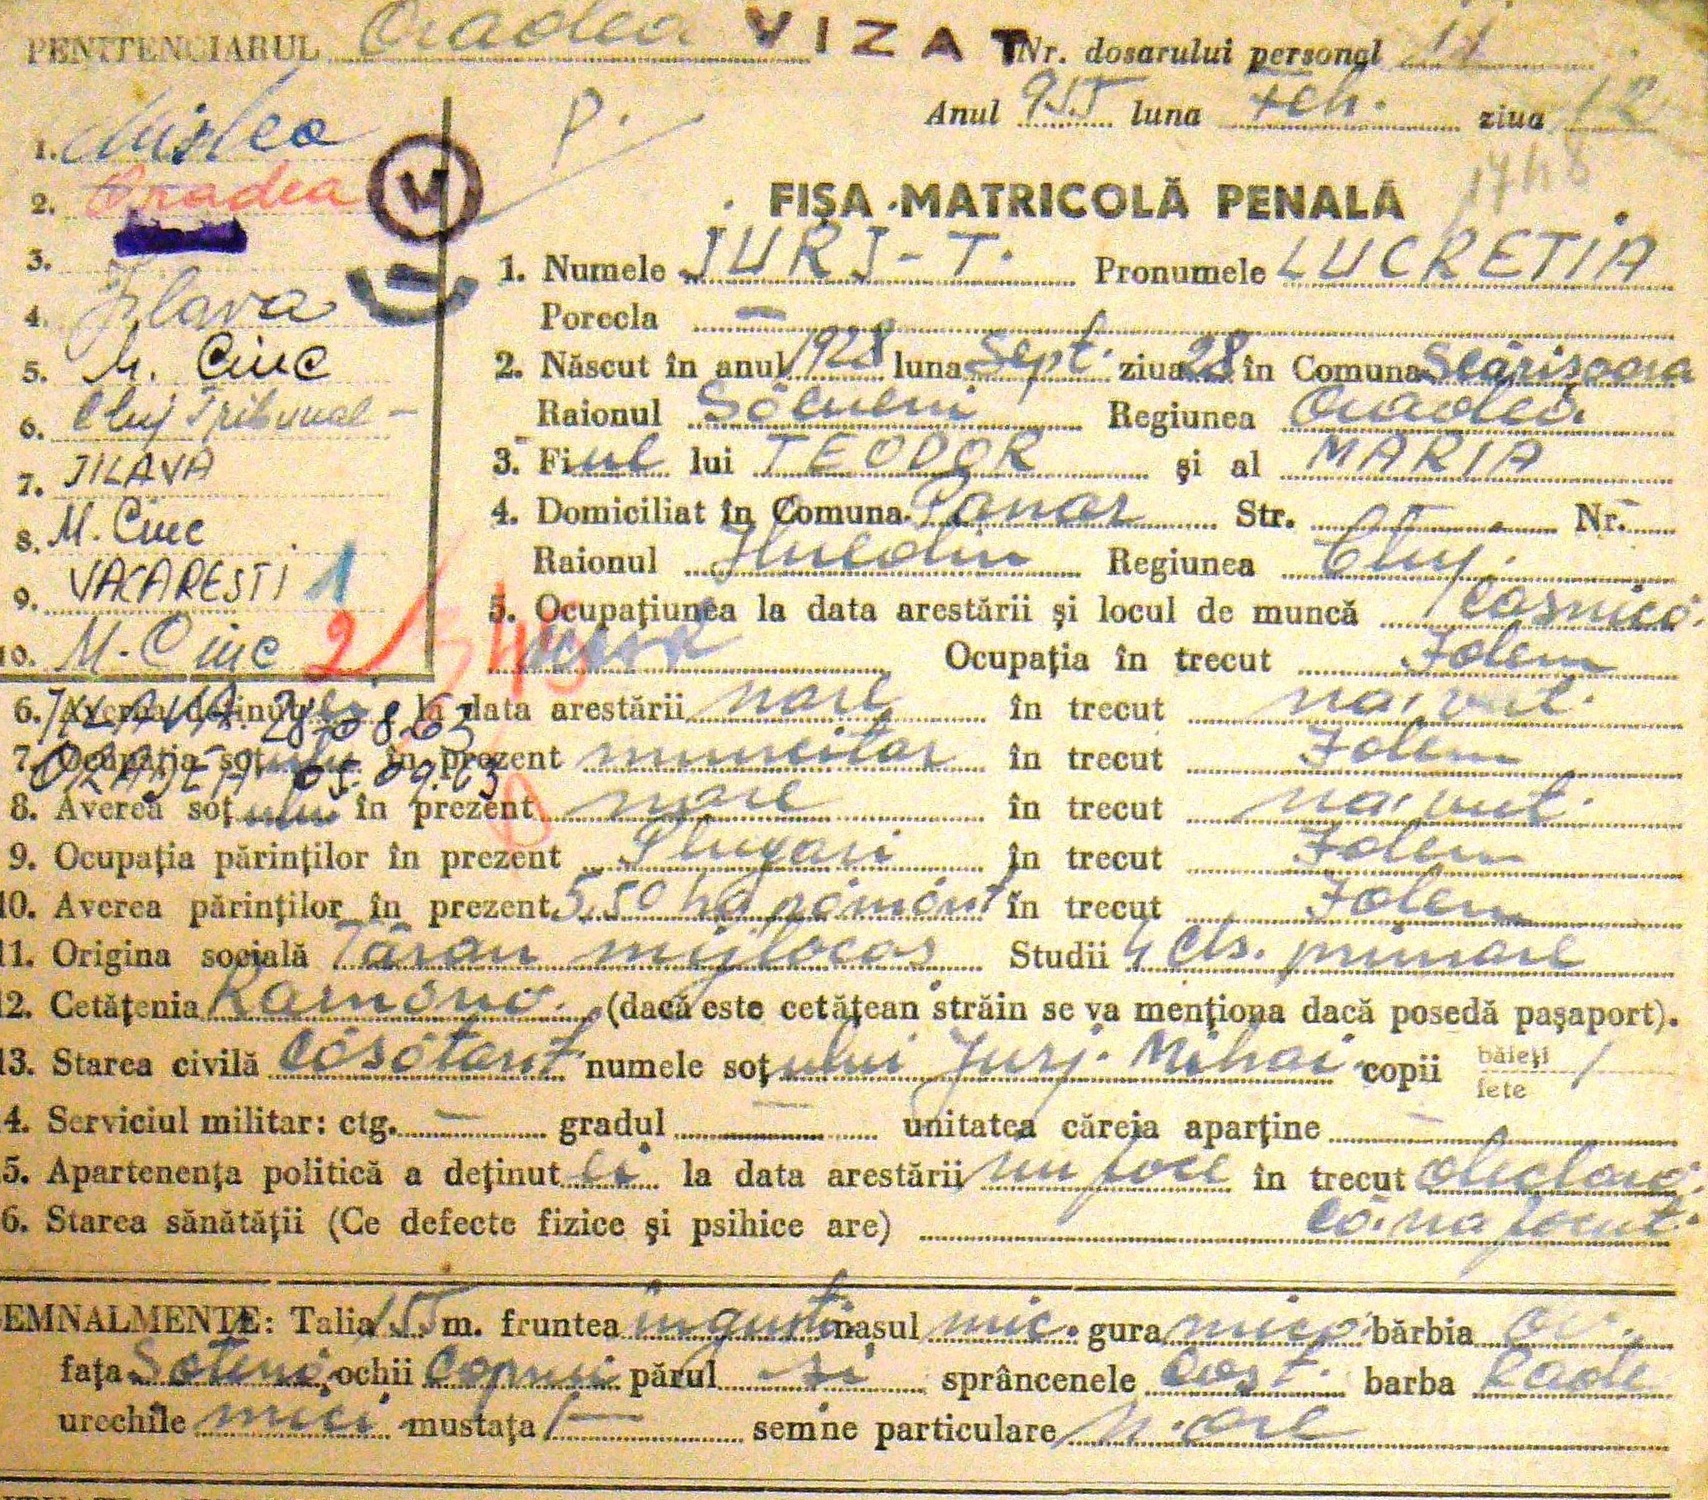 PENITENCIARUL Oradea VIZAT Nr. dosarului personal 11
Anul 955 luna Feb. ziua 12
P.
1748
1.
2. Oradea
3.
4. Jilava
5. M. Ciuc
6. Cluj Tribunal -
7. JILAVA
8. M. Ciuc
9. VACARESTI 1
10. M. Ciuc
FIȘA MATRICOLĂ PENALĂ
1. Numele JURJ - T. Pronumele LUCREȚIA
Porecla —
2. Născut în anul 1928 luna Sept. ziua 28 în Comuna Scărișoara
Raionul Săcueni Regiunea Oradea
3. Fiul lui TEODOR și al MARIA
4. Domiciliat în Comuna Str. — Nr.
Raionul Huedin Regiunea Cluj.
5. Ocupațiunea la data arestării și locul de muncă Casnică
Ocupația în trecut Idem
JILAVA 28.08.63
ORADEA 05.09.63
6. Averea deținutei la data arestării nare în trecut na avut.
7. Ocupația soțului în prezent muncitor în trecut Idem
8. Averea soțului în prezent nare în trecut na avut.
9. Ocupația părinților în prezent Plugari în trecut Idem
10. Averea părinților în prezent 5,50 ha pământ în trecut Idem
11. Origina socială Țăran mijlocaș Studii 4 cls. primare
12. Cetățenia Română. (dacă este cetățean străin se va menționa dacă posedă pașaport).
13. Starea civilă Căsătorit numele soțului Jurj Mihai copii băieți / fete
4. Serviciul militar: ctg. — gradul — unitatea căreia aparține —
5. Apartenența politică a deținutei la data arestării nu face în trecut declară
că na făcut.
6. Starea sănătății (Ce defecte fizice și psihice are)
EMNALMENTE: Talia 155 m. fruntea îngustă nasul mic. gura mică bărbia ov.
fața Sotenă ochii Căprui părul și sprâncenele Cast. barba Rade
urechile mici mustața — semne particulare n. are